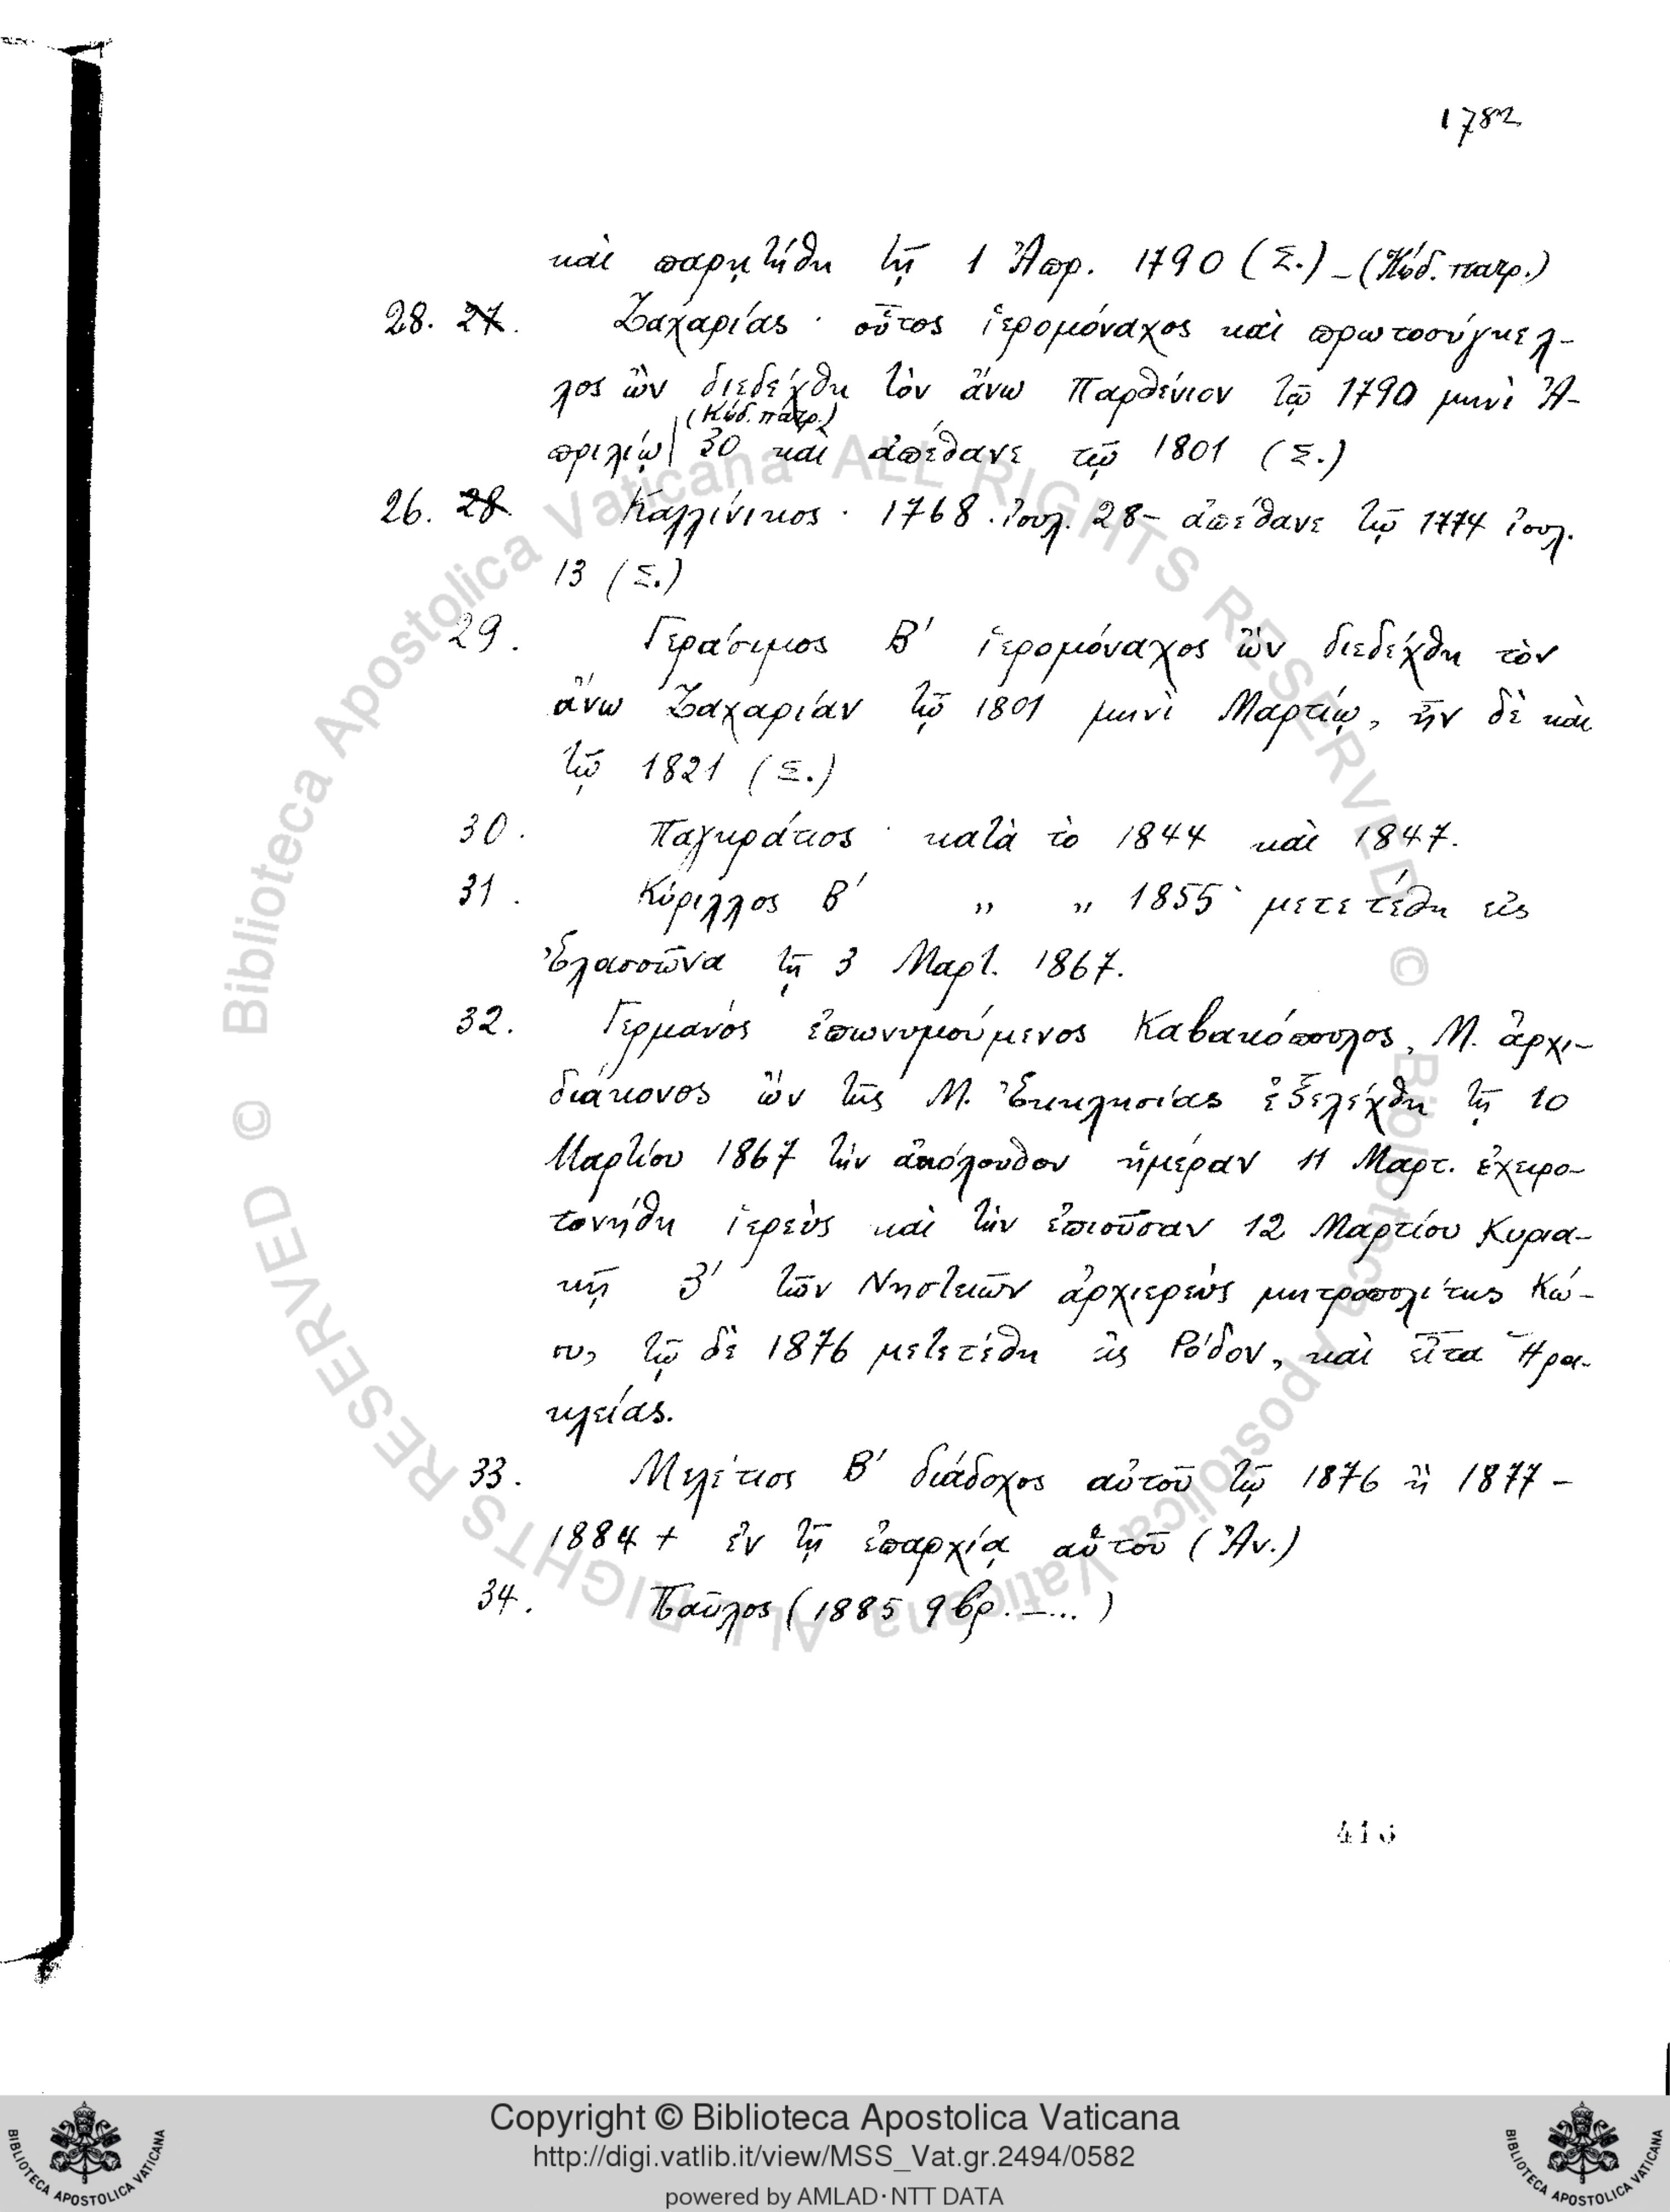 1782
καὶ παρῃτήθη τῇ 1 Ἀπρ. 1790 (Σ.) – (Κώδ. πατρ.)
28. 27. Ζαχαρίας · οὗτος ἱερομόναχος καὶ πρωτοσύγκελ-
λος ὢν διεδέχθη τὸν ἄνω Παρθένιον τῷ 1790 μηνὶ Ἀ-
(Κώδ. πατρ.)
πριλίῳ 30 καὶ ἀπέθανε τῷ 1801 (Σ.)
26. 28. Καλλίνικος · 1768 . Ἰουλ. 28 – ἀπέθανε τῷ 1774 Ἰουλ.
13 (Σ.)
29. Γεράσιμος Β' ἱερομόναχος ὢν διεδέχθη τὸν
ἄνω Ζαχαρίαν τῷ 1801 μηνὶ Μαρτίῳ, ἦν δὲ καὶ
τῷ 1821 (Σ.)
30. Παγκράτιος · κατὰ τὸ 1844 καὶ 1847.
31. Κύριλλος Β' „ „ 1855· μετετέθη εἰς
Ἐλασσῶνα τῇ 3 Μαρτ. 1867.
32. Γερμανός ἐπωνυμούμενος Καβακόπουλος, Μ. ἀρχι-
διάκονος ὢν τῆς Μ. Ἐκκλησίας ἐξελέχθη τῇ 10
Μαρτίου 1867 τὴν ἀκόλουθον ἡμέραν 11 Μαρτ. ἐχειρο-
τονήθη ἱερεὺς καὶ τὴν ἐπιοῦσαν 12 Μαρτίου Κυρια-
κῇ 3' τῶν Νηστειῶν ἀρχιερεὺς μητροπολίτης Κώ-
ου, τῷ δὲ 1876 μετετέθη εἰς Ρόδον, καὶ εἶτα Ἡρα-
κλείας.
33. Μελέτιος Β' διάδοχος αὐτοῦ τῷ 1876 ἢ 1877 –
1884 + ἐν τῇ ἐπαρχίᾳ αὑτοῦ (Ἀν.)
34. Παῦλος (1885 9βρ. –...)
Biblioteca Apostolica Vaticana ALL RIGHTS RESERVED ©
Biblioteca Apostolica Vaticana ALL RIGHTS RESERVED ©
Copyright © Biblioteca Apostolica Vaticana
http://digi.vatlib.it/view/MSS_Vat.gr.2494/0582
powered by AMLAD·NTT DATA
BIBLIOTECA APOSTOLICA VATICANA
BIBLIOTECA APOSTOLICA VATICANA